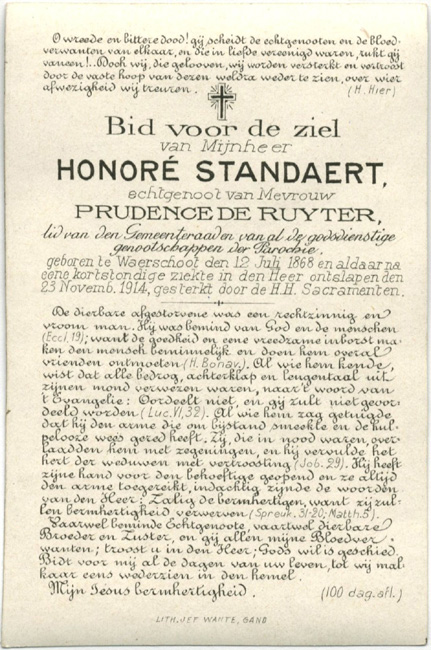 O wreede en bittere dood! gij scheidt de echtgenooten en de bloed-
verwanten van elkaar, en die in liefde vereenigd waren, rukt gij
vaneen!.. Doch wij, die gelooven, wij worden versterkt en vertroost
door de vaste hoop van dezen weldra weder te zien, over wier
afwezigheid wij treuren. (H. Hier)
Bid voor de ziel
van Mijnheer
HONORÉ STANDAERT,
echtgenoot van Mevrouw
PRUDENCE DE RUYTER,
lid van den Gemeenteraad en van al de godsdienstige
genootschappen der Parochie.
geboren te Waerschoot den 12 Juli 1868 en aldaar na
eene kortstondige ziekte in den Heer ontslapen den
23 Novemb. 1914, gesterkt door de H.H. Sacramenten.
De dierbare afgestorvene was een rechtzinnig en
vroom man. Hij was bemind van God en de menschen
(Eccl. 19); want de goedheid en eene vreedzame inborst ma-
ken den mensch beminnelijk en doen hem overal
vrienden ontmoeten (H. Bonav.). Al wie hem kende,
wist dat alle bedrog, achterklap en leugentaal uit
zijnen mond verweerd waren, naar 't woord van
't Evangelie: Oordeelt niet, en gij zult niet geoor-
deeld worden (Luc. VI, 32). Al wie hem zag getuigde
dat hij den arme die om bijstand smeekte en de hul-
pelooze wees gered heeft. Zij, die in nood waren, over-
laadden hem met zegeningen, en hij vervulde het
hert der weduwen met vertroosting (Job. 29). Hij heeft
zijne hand voor den behoeftige geopend en ze altijd
den arme toegereikt, indachtig zijnde de woorden
van den Heer: Zalig de bermhertigen, want zij zul-
len bermhertigheid verwerven (Spreuk. 31-20; Matth. 5).
Vaarwel beminde Echtgenoote, vaartwel dierbare
Broeder en Zuster, en gij allen mijne Bloedver-
wanten; troost u in den Heer; Gods wil is geschied.
Bidt voor mij al de dagen van uw leven, tot wij mal-
kaar eens wederzien in den hemel.
Mijn Jesus bermhertigheid. (100 dag. afl.)
LITH. JEF WANTE, GAND